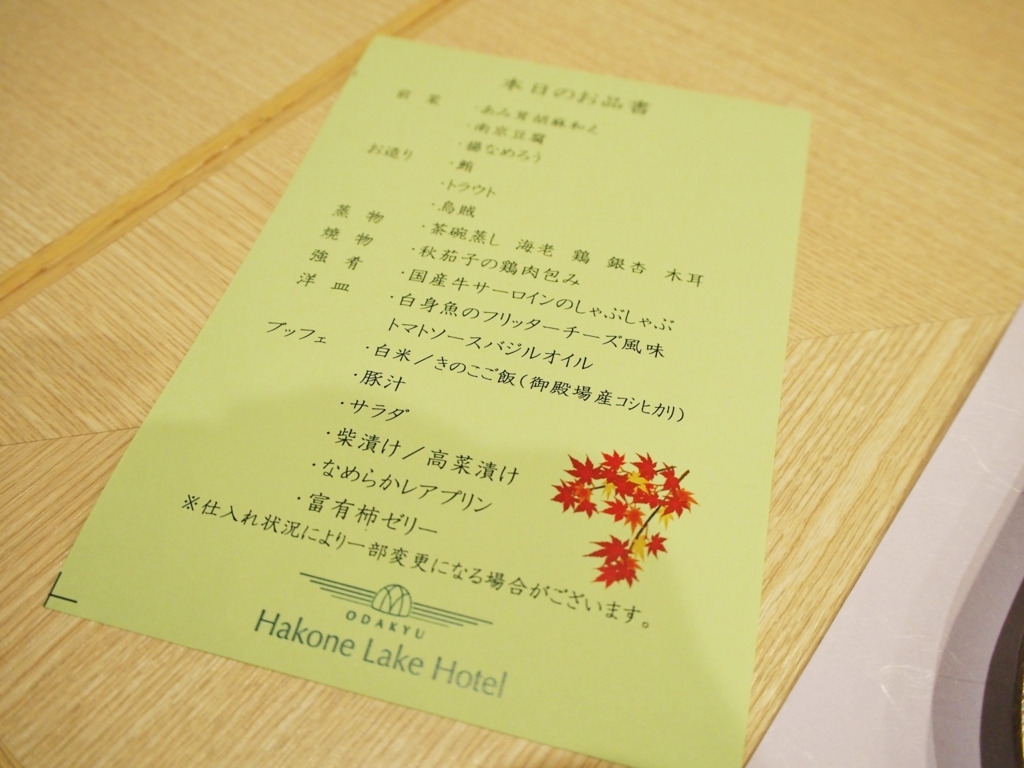 本日のお品書
前菜 ・あみ茸胡麻和え
・南京豆腐
・揚なめろう
お造り ・鮪
・トラウト
・烏賊
蒸物 ・茶碗蒸し 海老 鶏 銀杏 木耳
焼物 ・秋茄子の鶏肉包み
強肴 ・国産牛サーロインのしゃぶしゃぶ
洋皿 ・白身魚のフリッターチーズ風味
トマトソースバジルオイル
ブッフェ ・白米／きのこご飯(御殿場産コシヒカリ)
・豚汁
・サラダ
・柴漬け／高菜漬け
・なめらかレアプリン
・富有柿ゼリー
※仕入れ状況により一部変更になる場合がございます。
ODAKYU
Hakone Lake Hotel